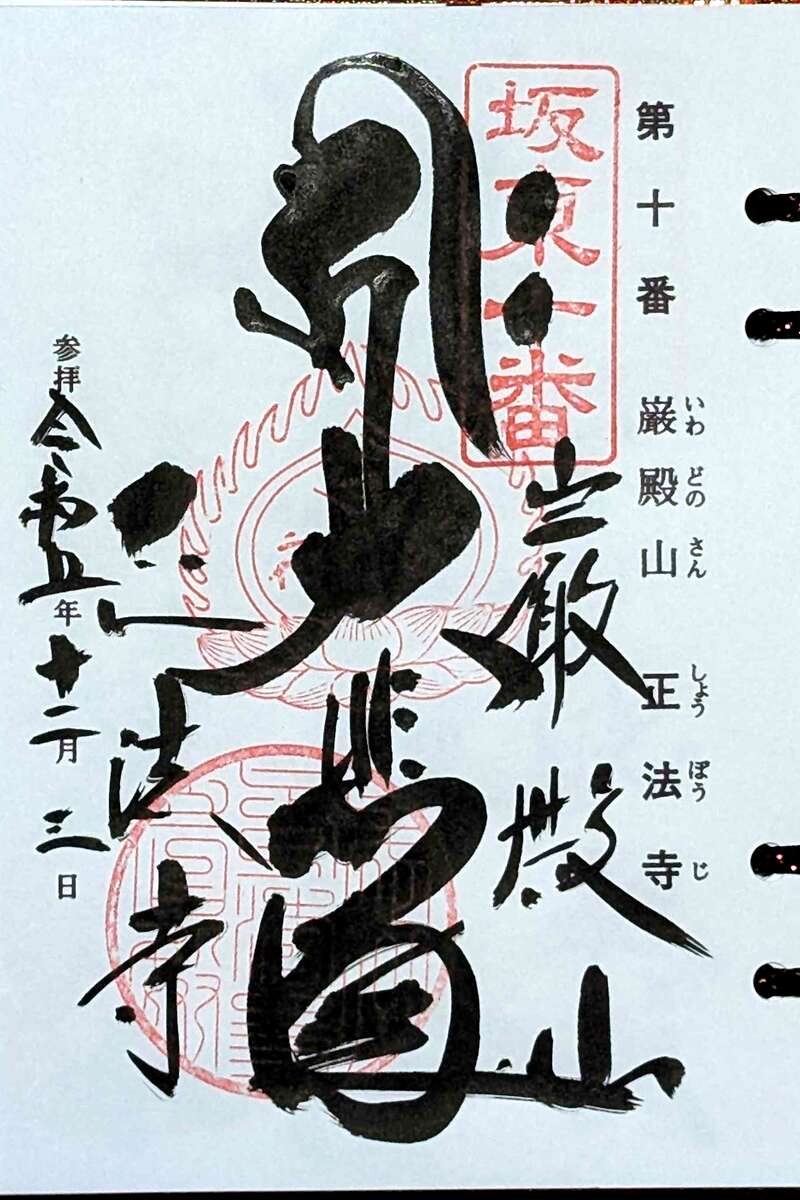 いわ どの さん しょう ぼう じ
第十番 巌殿山 正法寺
坂東十番
巌殿山
大悲閣
正法寺
参拝 令和五年十二月三日